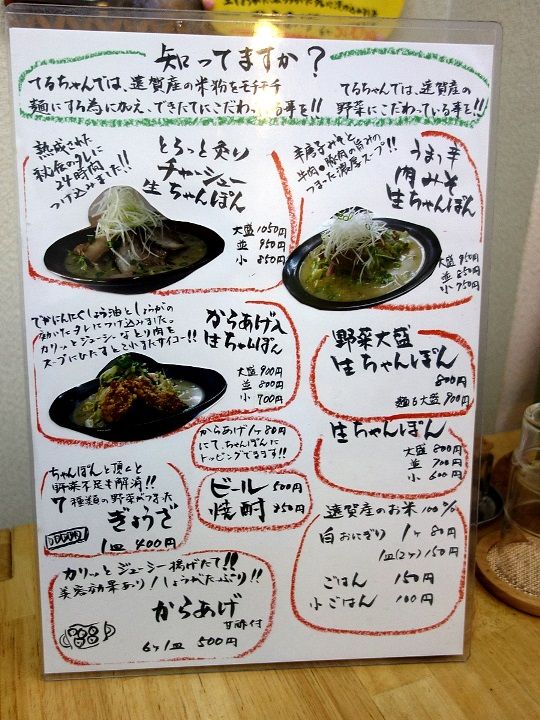 知ってますか？
てるちゃんでは、遠賀産の米粉をモチモチ
麺にする為に加え、できたてにこだわっている事を!!
てるちゃんでは、遠賀産の
野菜にこだわっている事を!!
熟成された
秘伝のタレに
24時間
つけ込みました!!
とろっと炙り
チャーシュー
生ちゃんぽん
大盛 1050円
並 950円
小 850円
辛唐子みそと
牛肉・豚肉の旨みの
つまった濃厚スープ!!
うまっ辛
肉みそ
生ちゃんぽん
大盛 950円
並 850円
小 750円
でかにんにくしょう油としょうがの
効いたタレにつけ込みました。
カリッとジューシーなとり肉を
スープにひたすとこれまたサイコー!!
からあげ入
生ちゃんぽん
大盛 900円
並 800円
小 700円
野菜大盛
生ちゃんぽん
800円
麺も大盛 900円
からあげ1ヶ80円
にて、ちゃんぽんに
トッピングできます!!
生ちゃんぽん
大盛 800円
並 700円
小 600円
ちゃんぽんと頂くと
野菜不足も解消!!
7種類の野菜がつまった
ぎょうざ
1皿 400円
ビール 500円
焼酎 350円
遠賀産のお米 100%
白おにぎり 1ヶ 80円
1皿(2ヶ) 150円
ごはん 150円
小ごはん 100円
カリッとジューシー揚げたて!!
美容効果あり！しょうがたっぷり!!
からあげ
甘酢付
6ヶ1皿 500円